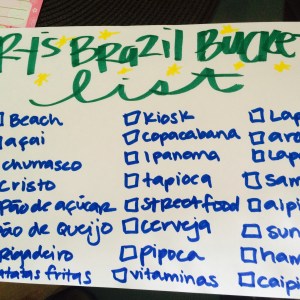 Brazil Bucke
list
Beach
açaí
churrasco
Cristo
Pão de açúcar
ão de Queijo
rigadeiro
atatas fritas
Kiosk
copacabana
Ipanema
tapioca
street food
cerveja
pipoca
vitaminas
Lap
aro
Lap
sam
aipi
sun
ham
caip